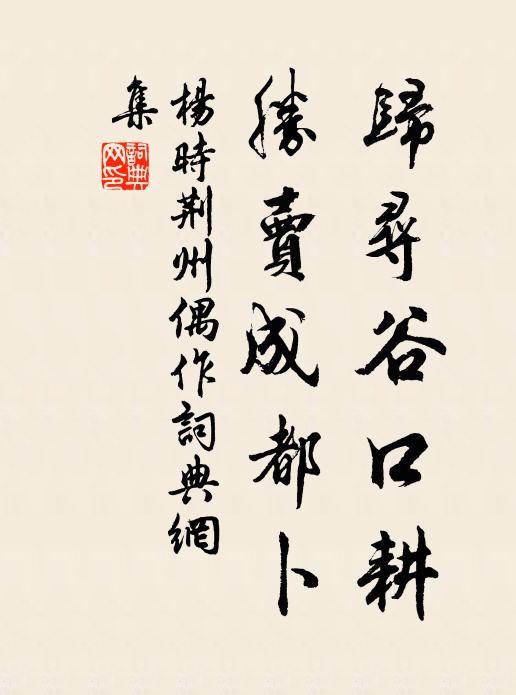 歸尋谷口耕
勝賣成都卜
楊時荆州偶作詞典網
集
詞典
网印